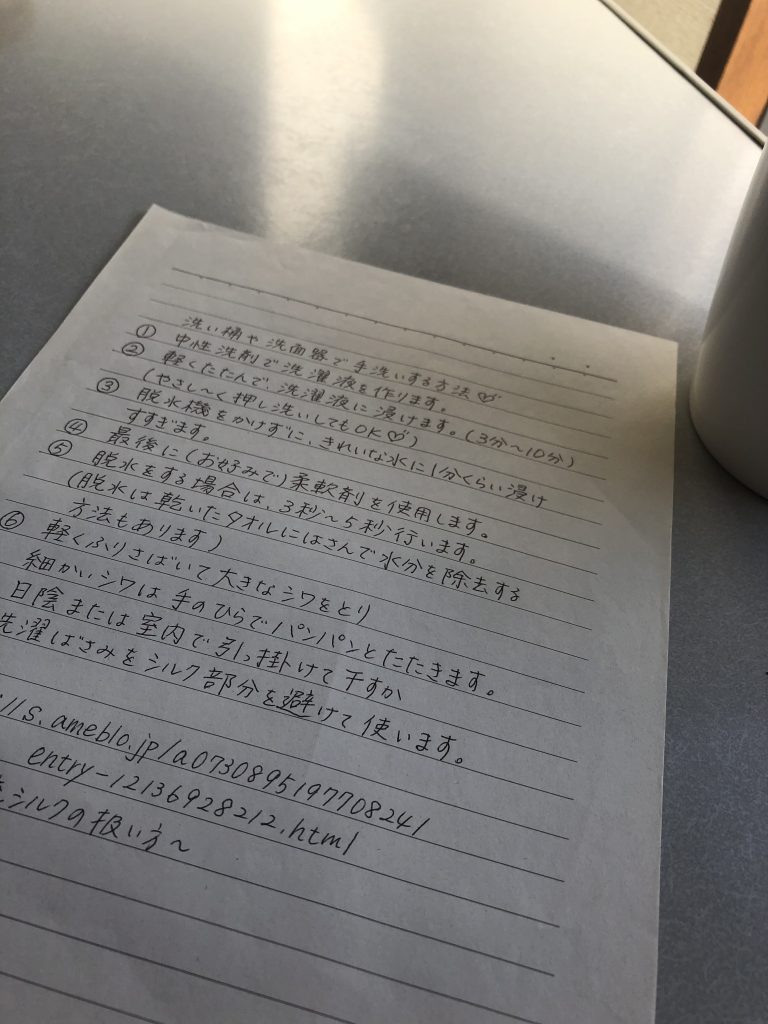 洗い桶や洗面器で手洗いする方法♡
① 中性洗剤で洗濯液を作ります。
② 軽くたたんで、洗濯液に浸けます。(3分〜10分)
(やさし〜く押し洗いしてもOK♡)
③ 脱水機をかけずに、きれいな水に1分くらい浸け
すすぎます。
④ 最後に(お好みで)柔軟剤を使用します。
⑤ 脱水をする場合は、3秒〜5秒行います。
(脱水は乾いたタオルにはさんで水分を除去する
方法もあります)
⑥ 軽くふりさばいて大きなシワをとり
細かいシワは手のひらでパンパンとたたきます。
日陰または室内で引っ掛けて干すか
洗濯ばさみをシルク部分を避けて使います。
://s.ameblo.jp/a0730895197708241
entry-12136928212.html
シルクの扱い方〜